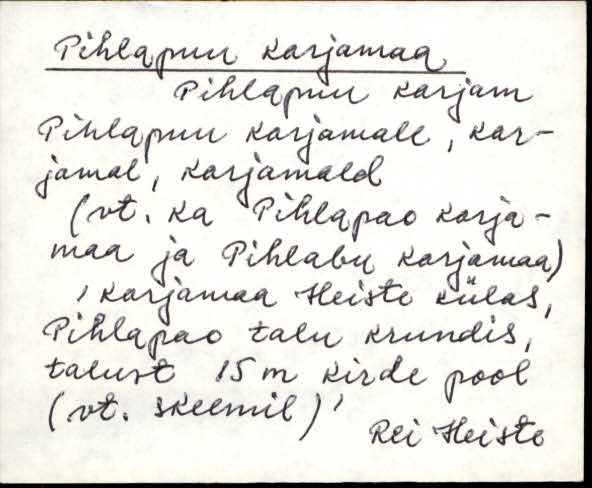 Pihlapuu karjamaa
Pihlapuu karjam
Pihlapuu karjamalle, kar-
jamal, karjamald
(vt. ka Pihlapao karja-
maa ja Pihlabu karjamaa)
, karjamaa Heiste külas,
Pihlapao talu krundis,
talust 15 m kirde pool
(vt. skeemil)'
Rei Heiste